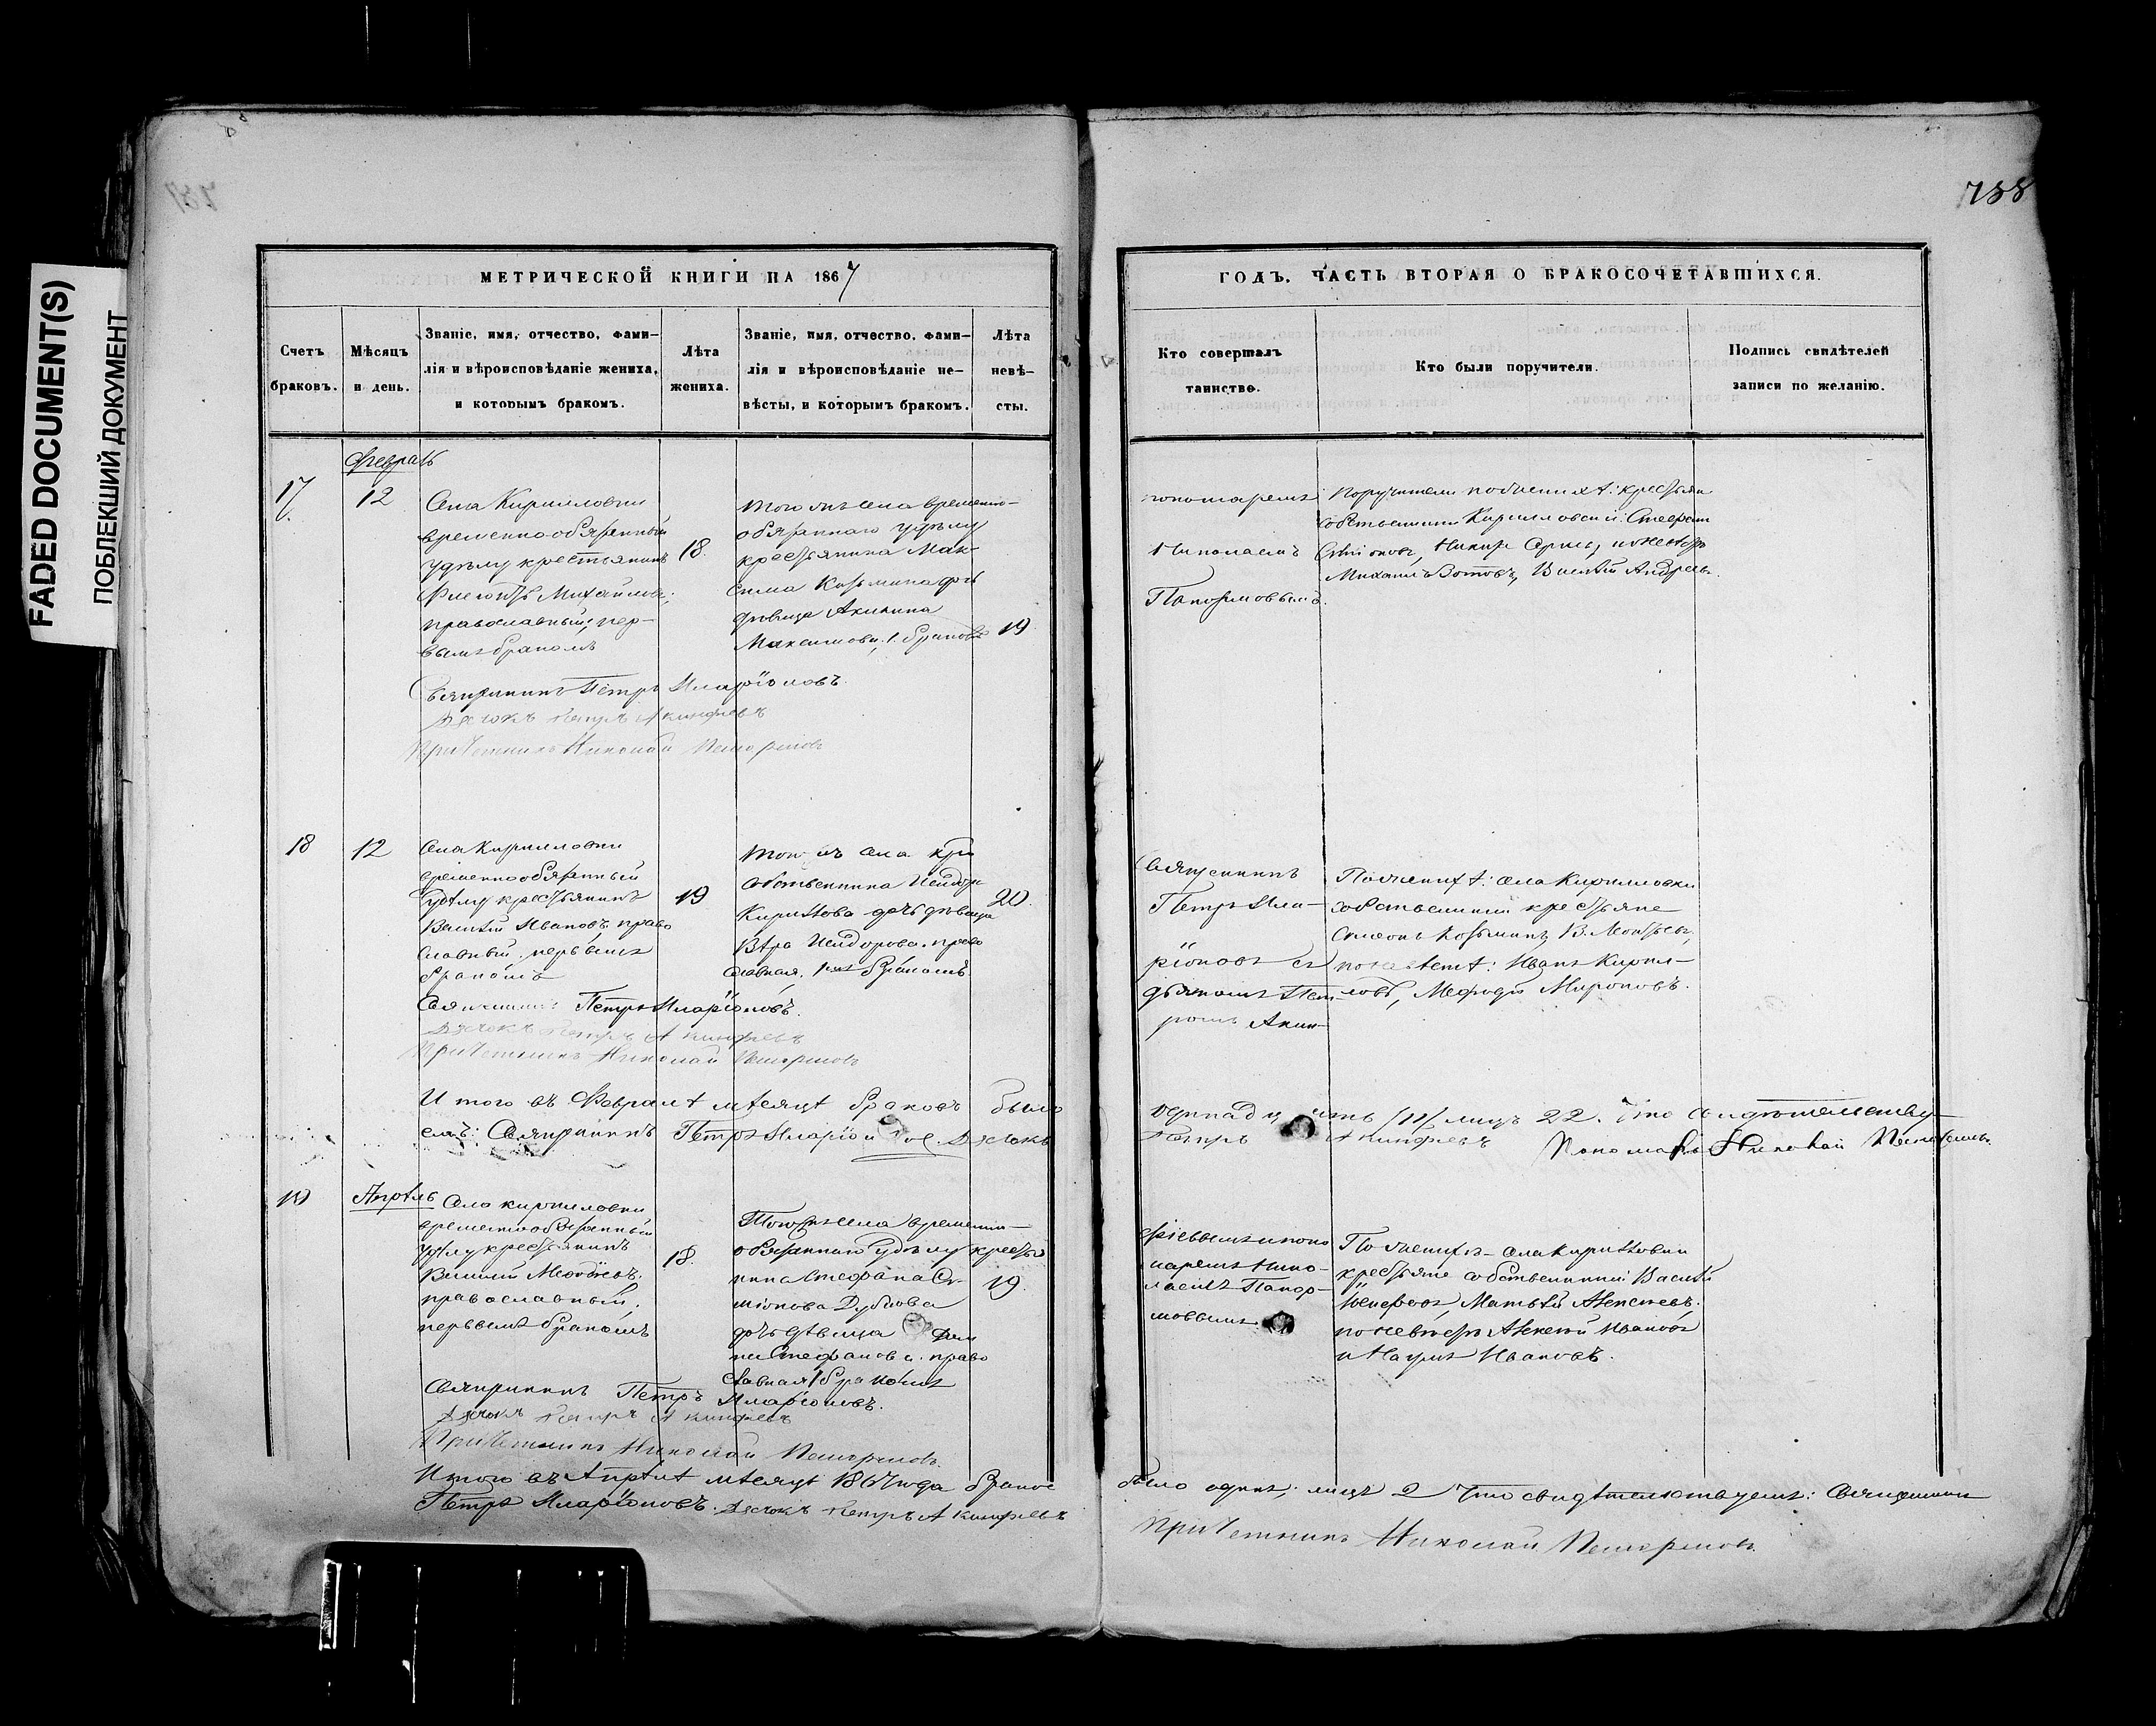 FADED DOCUMENT(S)
ПОБЛЕКШИЙ ДОКУМЕНТ
738
МЕТРИЧЕСКОЙ КНИГИ НА 1867
Счетъ браковъ.
Мѣсяцъ и день.
Званіе, имя, отчество, фами-
лія и вѣроисповѣданіе жениха,
и которымъ бракомъ.
Лѣта жениха.
Званіе, имя, отчество, фами-
лія и вѣроисповѣданіе не-
вѣсты, и которымъ бракомъ.
Лѣта невѣ-
сты.
Февраль
17
12
Села Кирилловки
временно обязанный
удѣлу крестьянинъ
Михайловъ,
православный, пер-
вымъ бракомъ
18.
того же села временно-
обязаннаго удѣлу
крестьянина Мак-
сима Козьмина дочь
дѣвица Акилина
Максимова, 1. бракомъ
19
Священникъ Петръ Иларіоновъ.
Дьячокъ Петръ Акинфіевъ
Причетникъ Николай
18
12
Села Кирилловки
временно обязанный
удѣлу крестьянинъ
Василій Ивановъ, право
славный, первымъ
бракомъ
19
того жъ села кре
собственника Исидора
Кириллова дочь дѣвица
Вѣра Исидорова, право
славная, 1мъ бракомъ
20.
Священникъ Петръ Иларіоновъ.
Дьячокъ Петръ Акинфіевъ
Причетникъ Николай
Итого въ Февралѣ мѣсяцѣ браковъ было
емъ: Священникъ Петръ Иларіоновъ. Дьячокъ
19
Апрѣль
Села Кирилловки
временно обязанный
удѣлу крестьянинъ
Василий
православный,
первымъ бракомъ
18.
Того жъ села временно-
обязаннаго удѣлу крестья
нина Стефана Си-
міонова
дочь дѣвица
Стефанова. право
славная 1 бракомъ
19.
Священникъ Петръ Иларіоновъ.
Дьячокъ Петръ Акинфіевъ
Причетникъ Николай
Итого въ Апрѣлѣ мѣсяцѣ 1867 года браковъ
Петръ Иларіоновъ. Дьячокъ Петръ Акинфіевъ
ГОДЪ. ЧАСТЬ ВТОРАЯ О БРАКОСОЧЕТАВШИХСЯ.
Кто совершалъ
таинство.
Кто были поручители.
Подпись свидѣтелей
записи по желанію.
пономаремъ
Николаемъ
Поручители по женихѣ: крестьян
собственники Кирилловски: Стефан
Михаилъ Василій Андреевъ.
Священникъ
Петръ Ила-
ріоновъ съ
дьячкомъ Пет-
ромъ Акин-
По женихѣ: села Кирилловки
собственники крестьяне
Симеонъ Козьминъ,
по невѣстѣ: Иванъ Кирил-
ловъ, Мефодій Мироновъ.
одинадцать /11/ лицъ 22. Что свидѣтельству-
Петръ Акинфіевъ Пономарь Николай
фіевымъ и поно
маремъ Нико-
лаемъ
По женихѣ - села Кирилловки
крестьяне собственники Василій
Матвѣй Алексѣевъ.
по невѣстѣ Алексѣй Ивановъ
и Наумъ Ивановъ.
было одинъ; лицъ 2 Что свидѣтельствуемъ: Священникъ
Причетникъ Николай